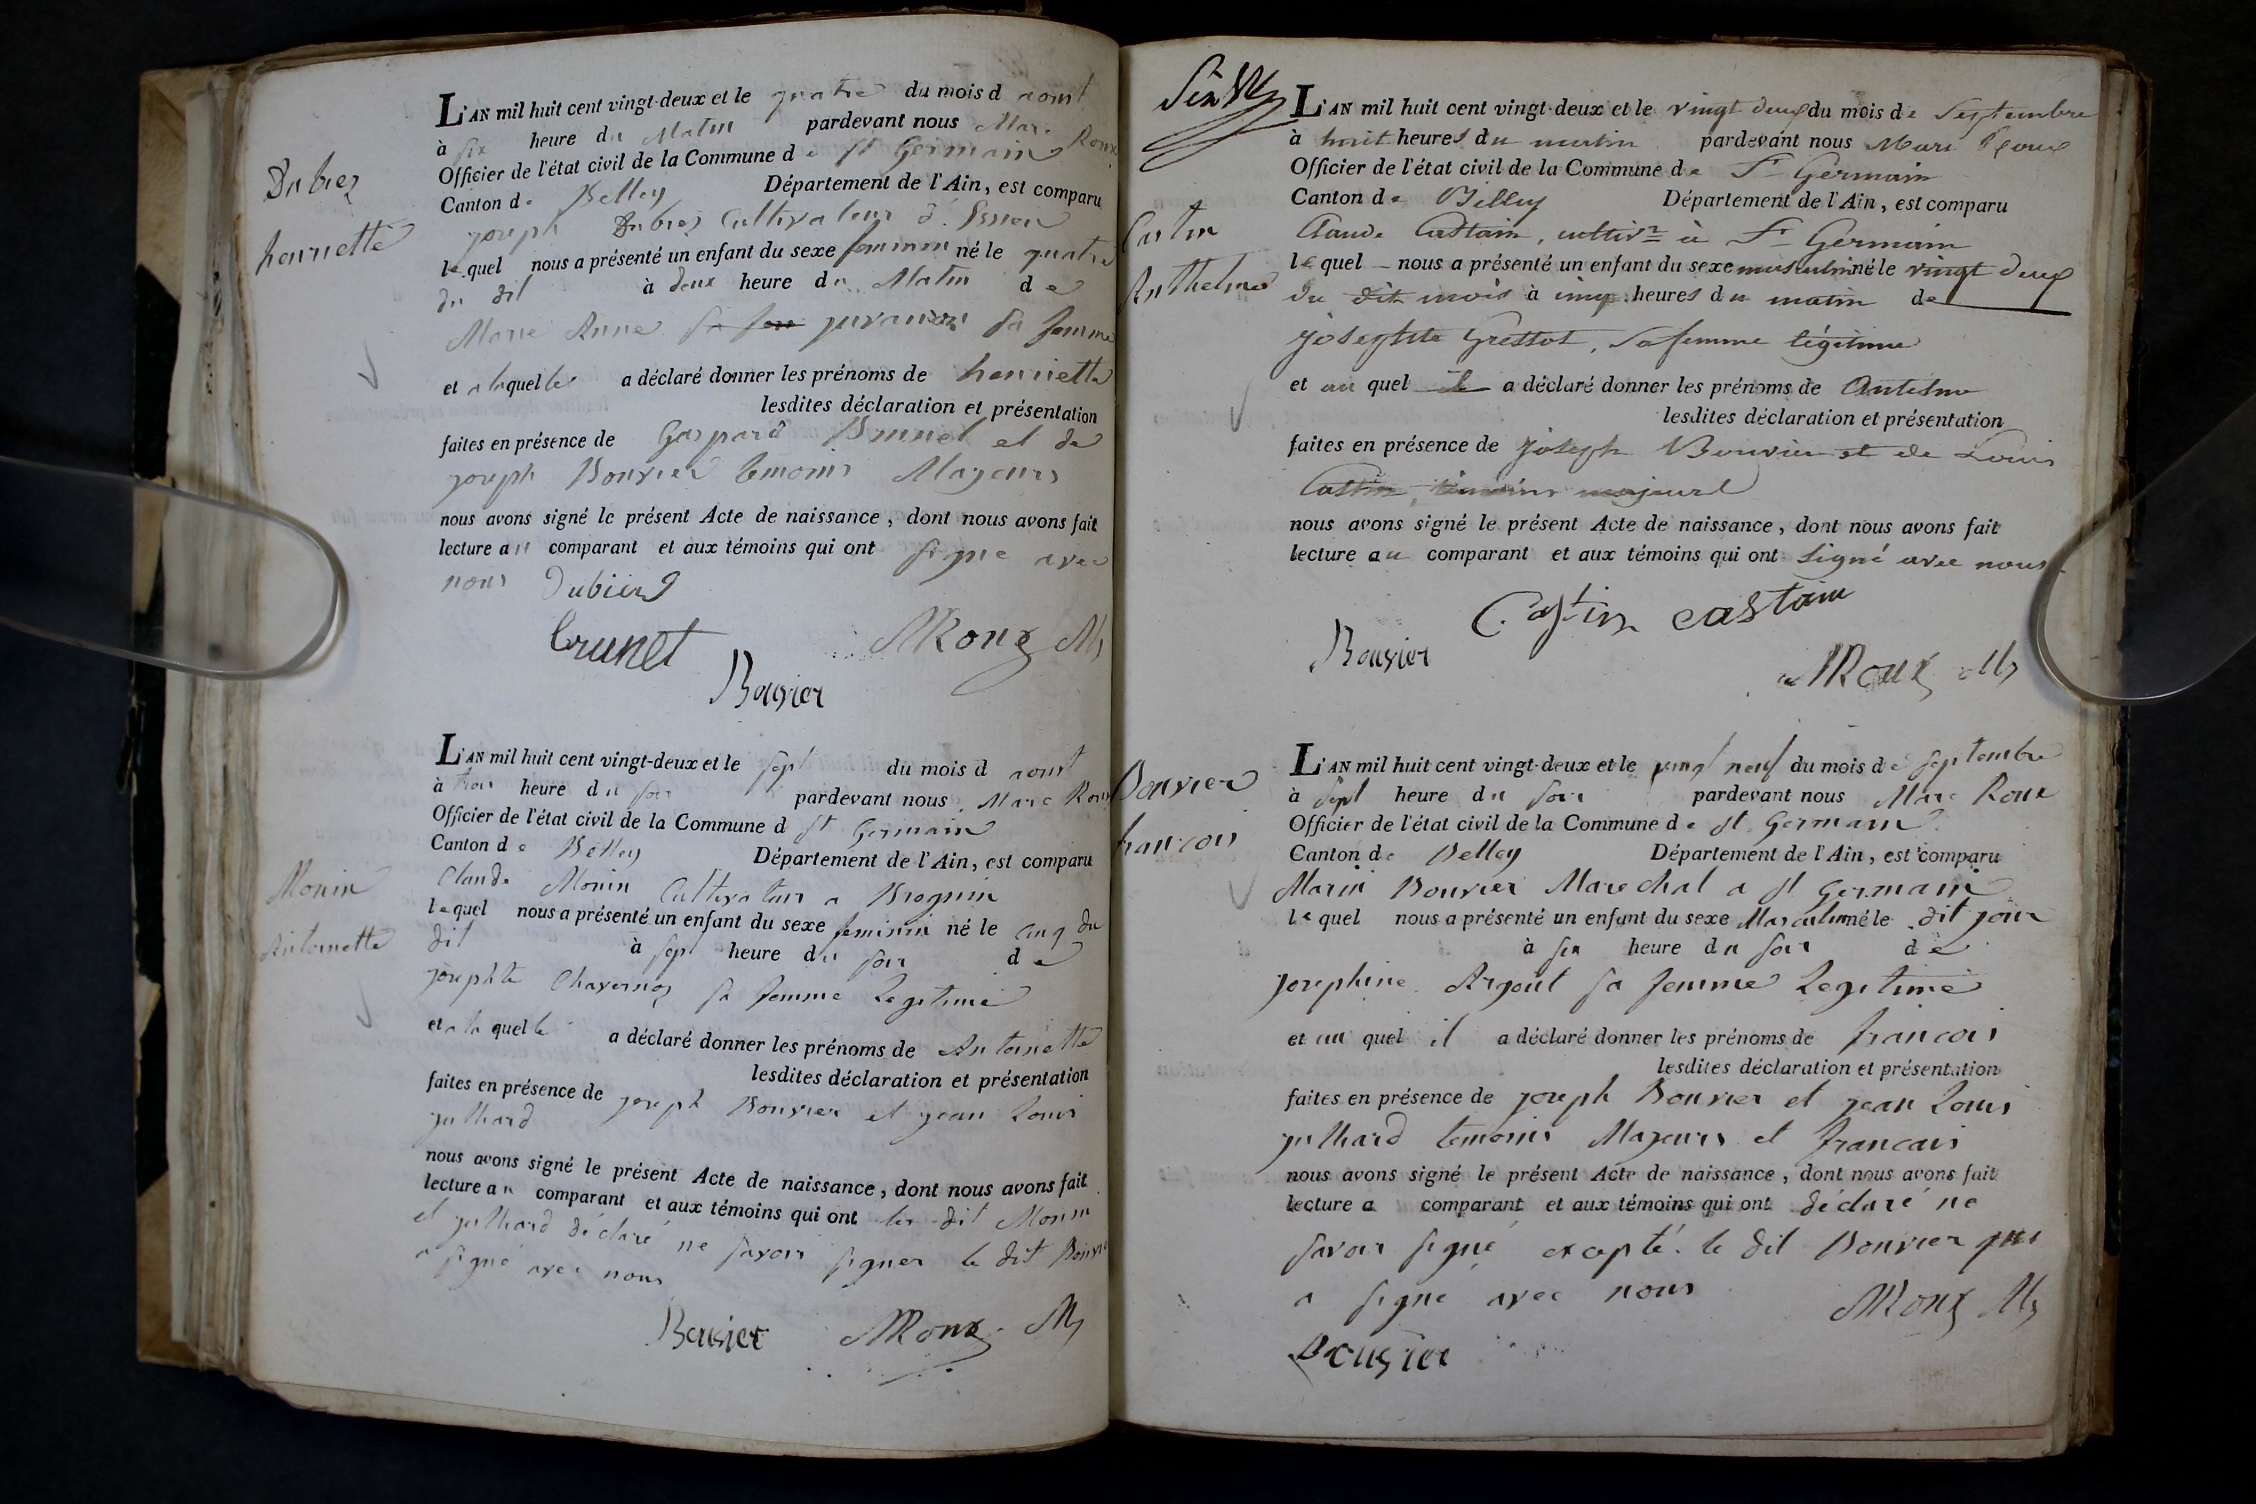 L'AN mil huit cent vingt-deux et le quatre du mois d aout
à six heure du Matin pardevant nous Marc Roux
Officier de l'état civil de la Commune de st Germain
Canton de Belley Département de l'Ain, est comparu
joseph Dubiez Cultivateur d'
lequel nous a présenté un enfant du sexe feminin né le quatre
du dit à deux heure du Matin de
Marie Anne sa femme
et a laquelle a déclaré donner les prénoms de henriette
lesdites déclaration et présentation
faites en présence de Gaspard Brunet et de
joseph Bouvier temoins Majeurs
nous avons signé le présent Acte de naissance, dont nous avons fait
lecture au comparant et aux témoins qui ont signe avec
nous Dubiez
brunet
MRoux
Bouvier
Dubiez
henriette
L'AN mil huit cent vingt-deux et le sept du mois d aout
à trois heure du soir pardevant nous Marc Roux
Officier de l'état civil de la Commune d st Germain
Canton de Belley Département de l'Ain, est comparu
Claude Monin Cultivateur a Brognin
lequel nous a présenté un enfant du sexe feminin né le cinq du
dit à sept heure du soir de
josephte Chavernoz sa femme Legitime
et a la quelle a déclaré donner les prénoms de Antoinette
lesdites déclaration et présentation
faites en présence de joseph Bouvier et jean Louis
julliard
nous avons signé le présent Acte de naissance, dont nous avons fait
lecture au comparant et aux témoins qui ont les dit Monin
et julliard déclaré ne savoir signer le dit Bouvier
a signé avec nous
Bouvier MRoux
Monin
Antoinette
L'AN mil huit cent vingt-deux et le vingt deux du mois de Septembre
à huit heures du matin pardevant nous Marc Roux
Officier de l'état civil de la Commune de St Germain
Canton de Belley Département de l'Ain, est comparu
Claude Castain, cultivr à St Germain
lequel nous a présenté un enfant du sexe masculin né le vingt deux
du dit mois à cinq heures du matin de
josephte Grettot, sa femme légitime
et au quel il a déclaré donner les prénoms de Antelme
lesdites déclaration et présentation
faites en présence de joseph Bouvier et de Louis
Castin, témoins majeurs
nous avons signé le présent Acte de naissance, dont nous avons fait
lecture au comparant et aux témoins qui ont signé avec nous
Castin castain
Bouvier
MRoux
Castin
Anthelme
L'AN mil huit cent vingt-deux et le vingt neuf du mois de septembre
à sept heure du soir pardevant nous Marc Roux
Officier de l'état civil de la Commune de st Germain
Canton de Belley Département de l'Ain, est comparu
Marin Bouvier Marechal a st Germain
lequel nous a présenté un enfant du sexe Masculin né le dit jour
à six heure du soir de
josephine Argout sa femme Legitime
et au quel il a déclaré donner les prénoms de francois
lesdites déclaration et présentation
faites en présence de joseph Bouvier et jean Louis
julliard temoins Majeurs et francais
nous avons signé le présent Acte de naissance, dont nous avons fait
lecture a comparant et aux témoins qui ont déclaré ne
savoir signé excepté le dit Bouvier qui
a signé avec nous
MRoux
Bouvier
Bouvier
francois